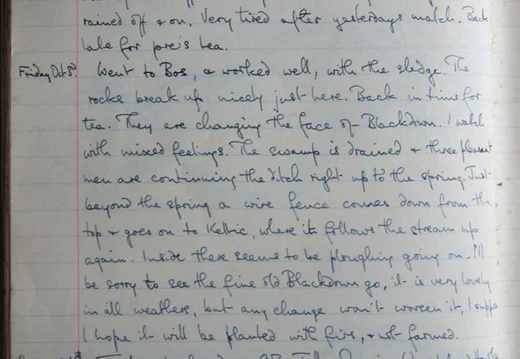 rained off & on. Very tired after yesterdays match. Back
late for tea.
Friday Oct 3rd. Went to Bos, & worked well, with the sledge. The
rocks break up nicely just here. Back in time for
tea. They are changing the face of Blackdown. I watch
with mixed feelings. The swamp is drained & three pleasant
men are continuing the ditch right up to the spring. Just
beyond the spring a wire fence comes down from the
top & goes on to Keltic, where it follows the stream up
again. Inside there seems to be ploughing going on. I'll
be sorry to see the fine old Blackdown go, it is very lovely
in all weathers, but any change won't worsen it, I suppose
I hope it will be planted with firs, & not farmed.